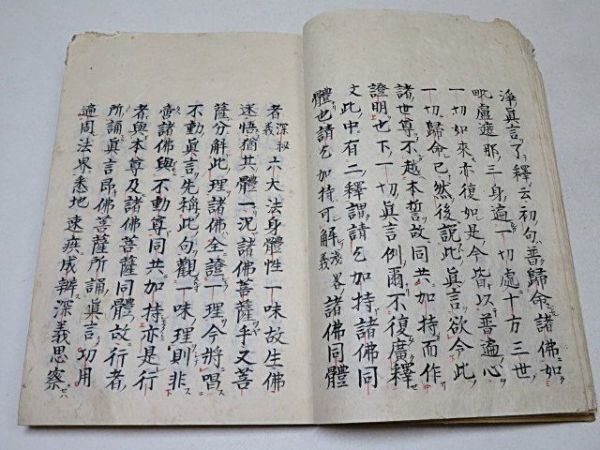 淨眞言了釋云初句普歸命諸佛如
毗盧遮那三身遍一切處十方三世
一切如來亦復如是今皆以普遍心
一切歸命已然後説此眞言欲令此
諸世尊不越本誓故同共加持而作
證明也下一切眞言例爾不復廣釋
文此中有二釋謂請乞加持諸佛同
體也請乞加持可解淺畧義諸佛同體
者深秘義六大法身體性一味故生佛
迷悟猶共體一況諸佛菩薩乎又菩
薩分解此理諸佛全證一理今將唱
不動眞言先稱此句觀一味理則非
啻諸佛與不動尊同共加持亦是行
者與本尊及諸佛菩薩同體故行者
所誦眞言卽佛菩薩所誦眞言功用
遍周法界悉地速疾成辨深義思察